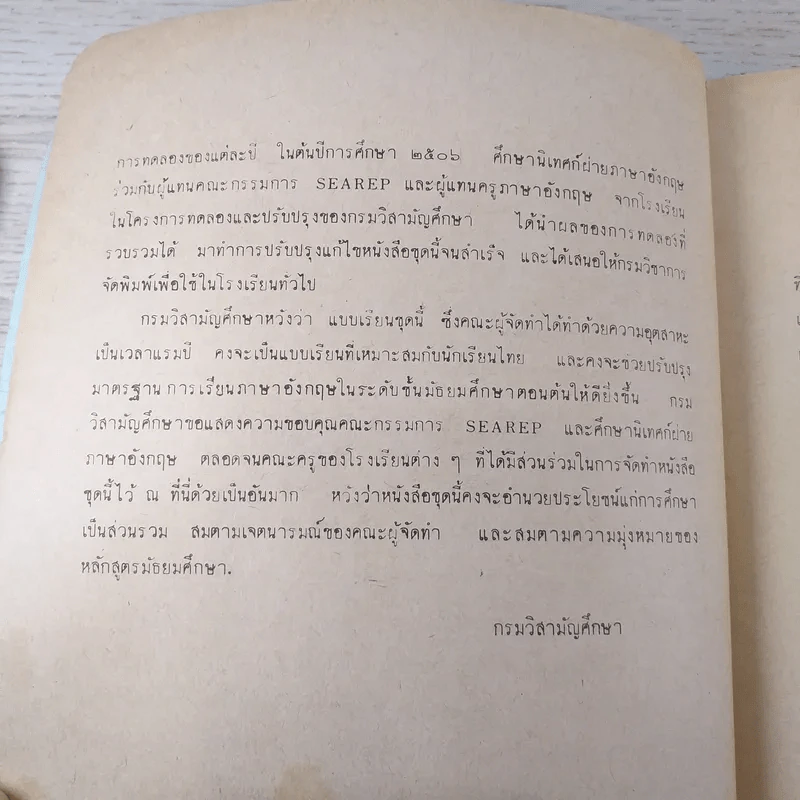 การทดลองของแต่ละปี ในต้นปีการศึกษา ๒๕๐๖ ศึกษานิเทศก์ฝ่ายภาษาอังกฤษ
ร่วมกับผู้แทนคณะกรรมการ SEAREP และผู้แทนครูภาษาอังกฤษ จากโรงเรียน
ในโครงการทดลองและปรับปรุงของกรมวิสามัญศึกษา ได้นำผลของการทดลองที่
รวบรวมได้ มาทำการปรับปรุงแก้ไขหนังสือชุดนี้จนสำเร็จ และได้เสนอให้กรมวิชาการ
จัดพิมพ์เพื่อใช้ในโรงเรียนทั่วไป
กรมวิสามัญศึกษาหวังว่า แบบเรียนชุดนี้ ซึ่งคณะผู้จัดทำได้ทำด้วยความอุตสาหะ
เป็นเวลาแรมปี คงจะเป็นแบบเรียนที่เหมาะสมกับนักเรียนไทย และคงจะช่วยปรับปรุง
มาตรฐานการเรียนภาษาอังกฤษในระดับชั้นมัธยมศึกษาตอนต้นให้ดียิ่งขึ้น กรม
วิสามัญศึกษาขอแสดงความขอบคุณคณะกรรมการ SEAREP และศึกษานิเทศก์ฝ่าย
ภาษาอังกฤษ ตลอดจนคณะครูของโรงเรียนต่าง ๆ ที่ได้มีส่วนร่วมในการจัดทำหนังสือ
ชุดนี้ไว้ ณ ที่นี้ด้วยเป็นอันมาก หวังว่าหนังสือชุดนี้คงจะอำนวยประโยชน์แก่การศึกษา
เป็นส่วนรวม สมตามเจตนารมณ์ของคณะผู้จัดทำ และสมตามความมุ่งหมายของ
หลักสูตรมัธยมศึกษา.
กรมวิสามัญศึกษา